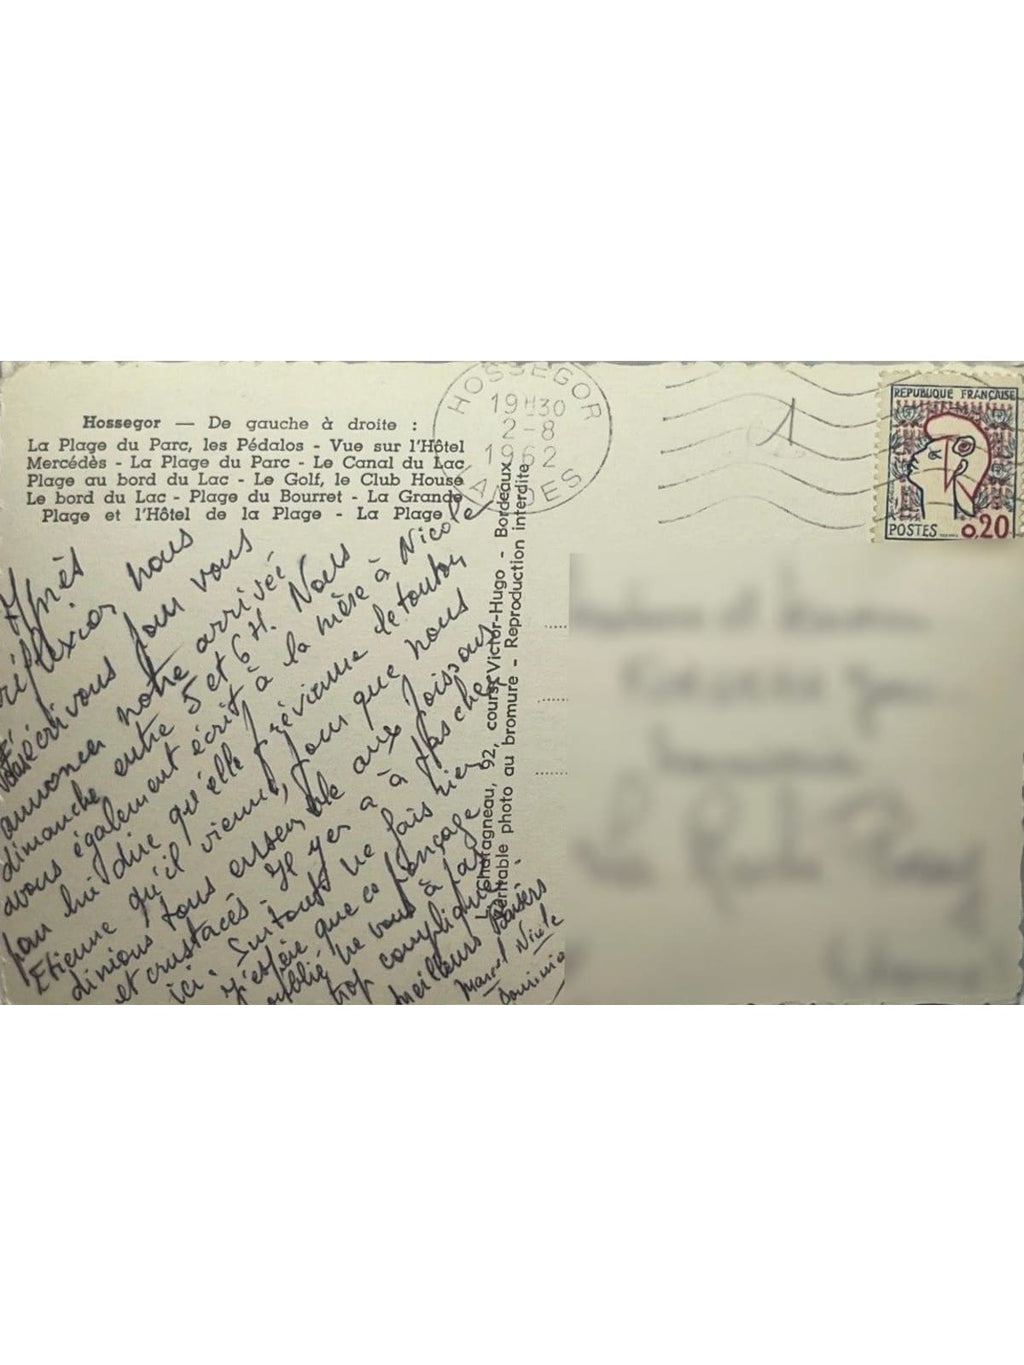 Hossegor — De gauche à droite :
La Plage du Parc, les Pédalos - Vue sur l'Hôtel
Mercédès - La Plage du Parc - Le Canal du Lac
Plage au bord du Lac - Le Golf, le Club House
Le bord du Lac - Plage du Bourret - La Grande
Plage et l'Hôtel de la Plage - La Plage
HOSSEGOR
19H30
2-8
1962
LANDES
1
REPUBLIQUE FRANÇAISE
POSTES 0,20
Après
réflexion nous
vous écrivons pour vous
annoncer notre arrivée
dimanche entre 5 et 6 H. Nous
avons également écrit à la mère à Nicole
pour lui dire qu'elle prévienne
Etienne qu'il vienne, pour que nous
dinions tous ensemble aux poissons
et crustacés. Il y en a à
ici surtout ne fais rien
J'espère que ce
oublié ne vous a pas
trop compliqué
meilleurs baisers
Marcel Nicole
Chatagneau, 92, cours Victor-Hugo - Bordeaux
Véritable photo au bromure - Reproduction interdite